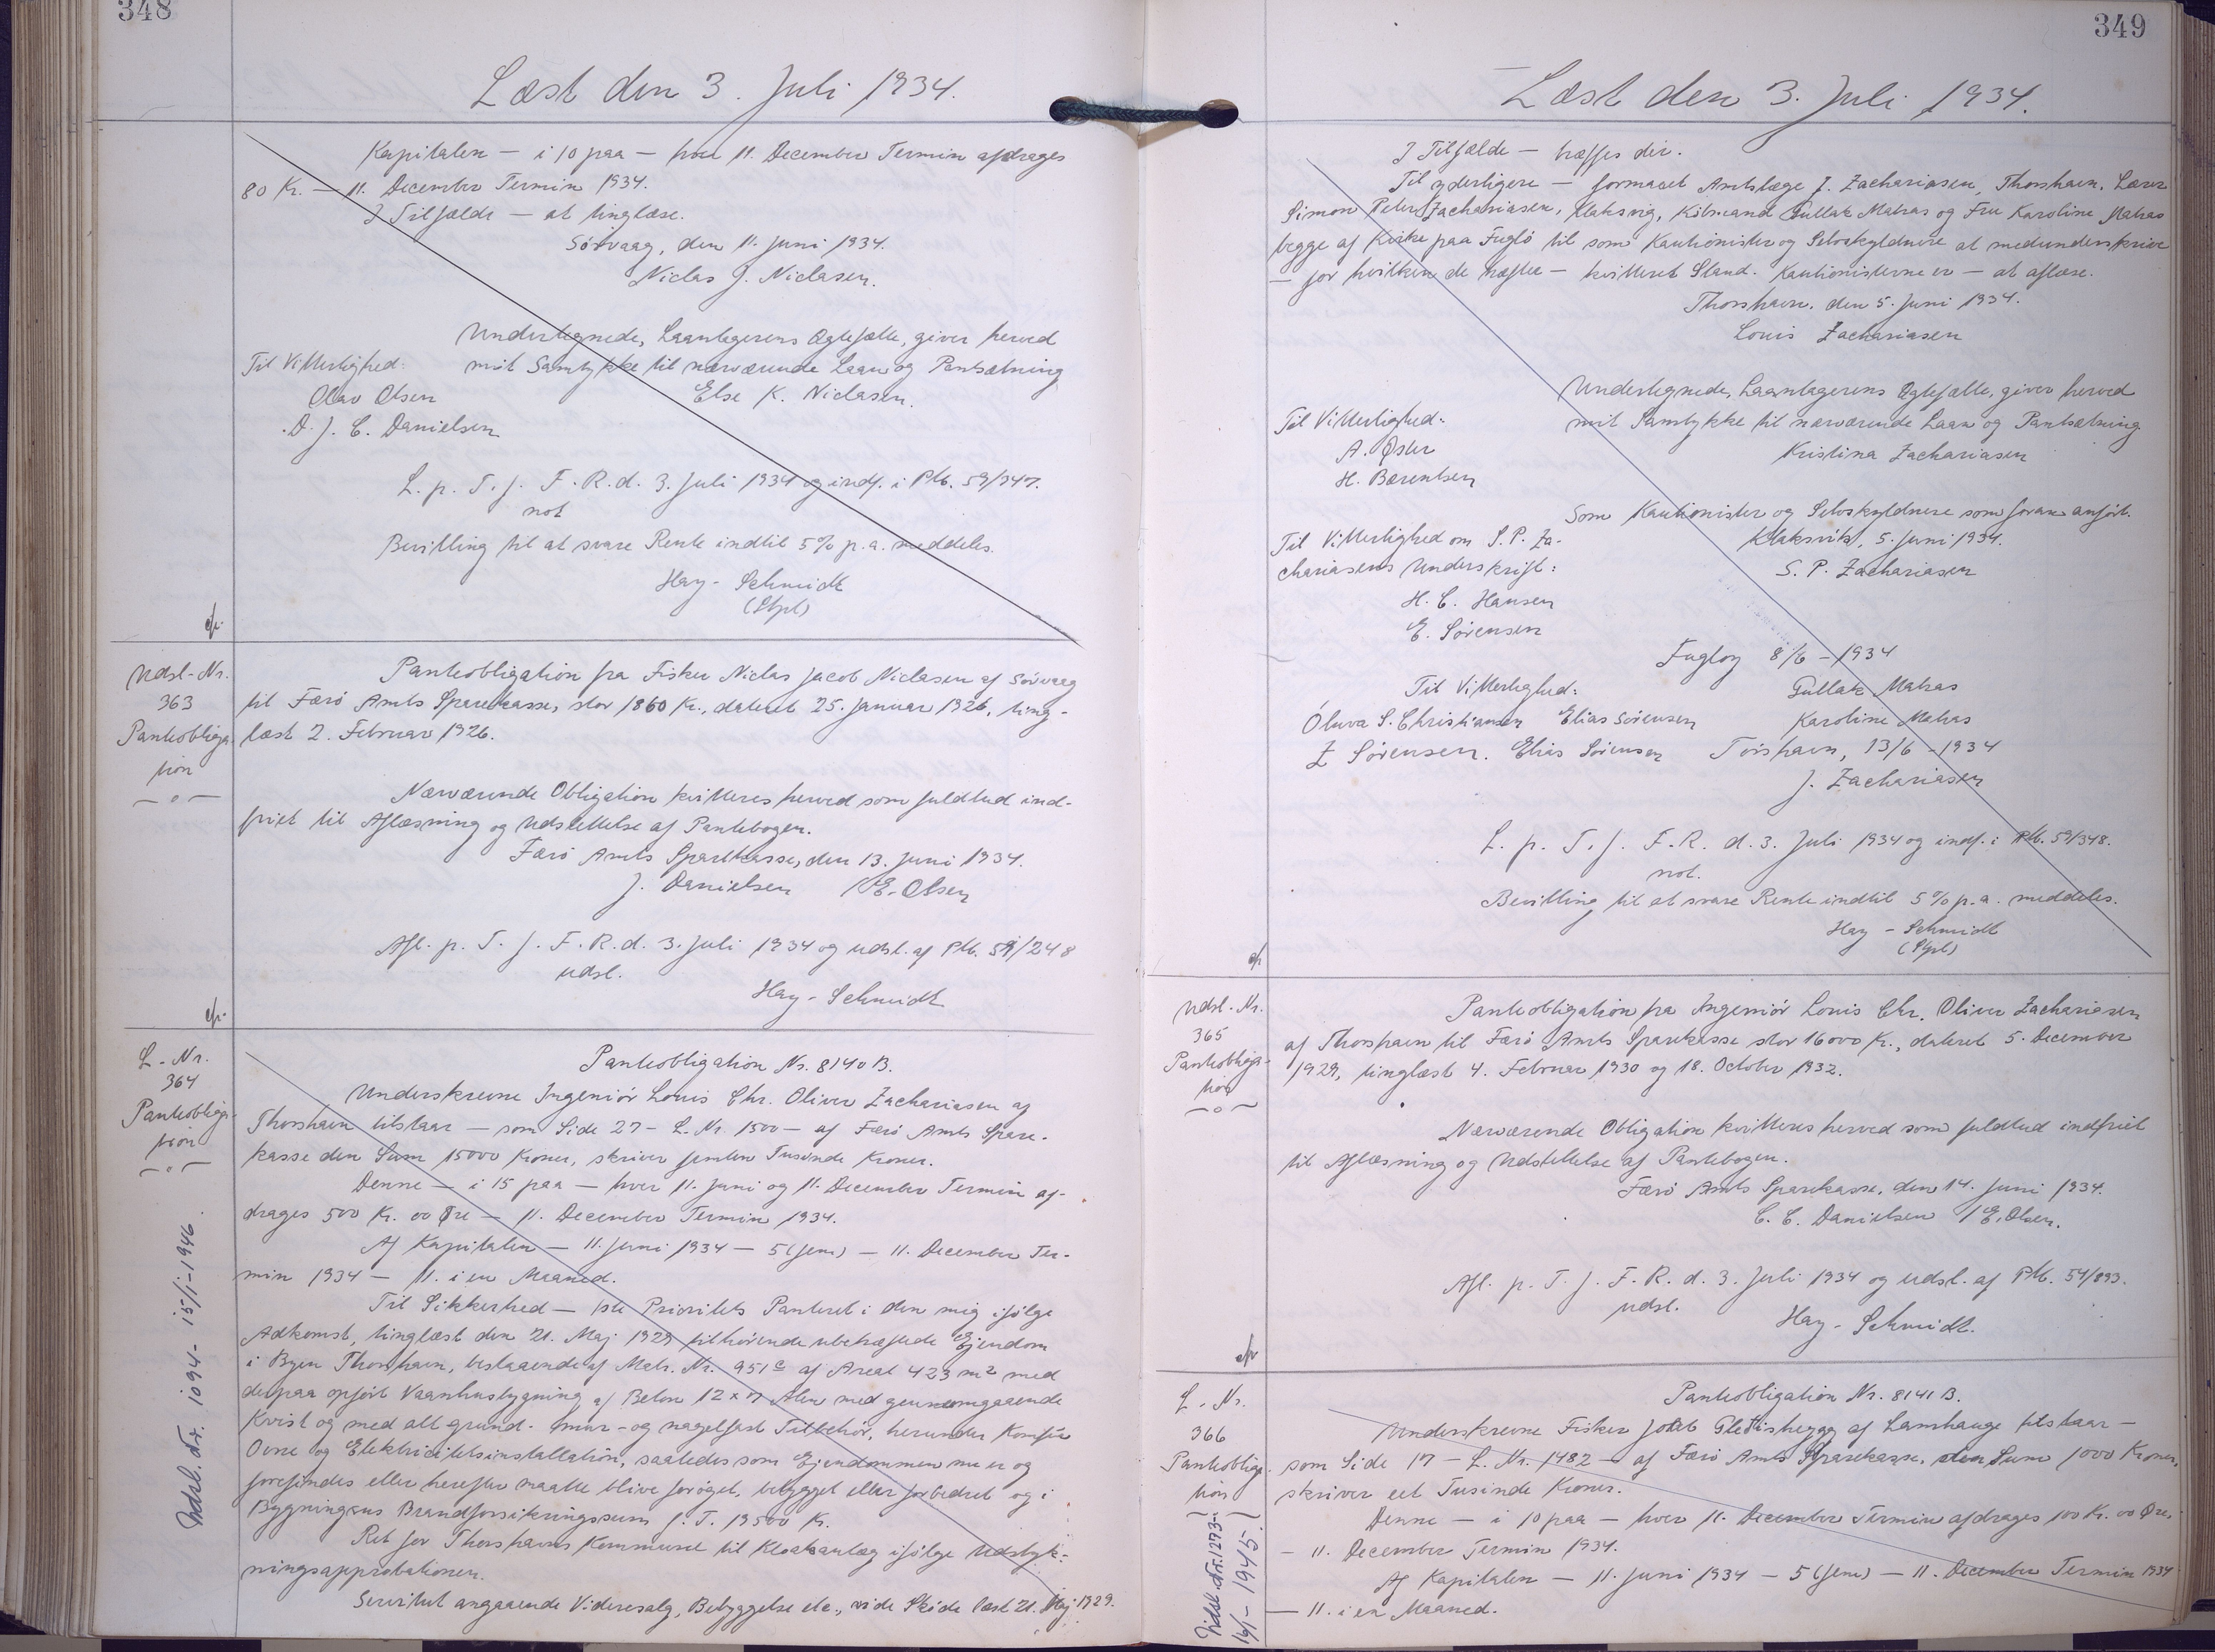 348
Læst den 3. Juli 1934.
Kapitalen — i 10 paa — hver 11. December Termin afdrages
80 Kr. — 11. December Termin 1934.
I Tilfælde — at tinglæse.
Sörvaag, den 11. Juni 1934.
Niclas J. Niclasen.
Undertegnede, Laantagerens Ægtefælle, giver herved
Til Vitterlighed: mit Samtykke til nærværende Laan og Pantsætning
Olav Olsen Else K. Niclasen.
D. J. C. Danielsen
L. p. T. f. F. R. d. 3. Juli 1934 og indf. i Ptb. 59/347.
not
Bevilling til at svare Rente indtil 5% p.a. meddeles.
Hay-Schmidt
(Stpl)
Udsl-Nr.
363
Panteobliga-
tion
— o —
Panteobligation fra Fisker Niclas Jacob Niclasen af Sörvaag
til Færö Amts Sparekasse, stor 1860 Kr., dateret 25. Januar 1926, ting-
læst 2. Februar 1926.
Nærværende Obligation kvitteres herved som fuldtud ind-
friet til Aflæsning og Udslettelse af Pantebogen.
Færö Amts Sparekasse, den 13. Juni 1934.
J. Danielsen / E. Olsen
Afl. p. T. f. F. R. d. 3. Juli 1934 og udsl. af Ptb. 59/248
udsl.
Hay-Schmidt
L-Nr.
364
Panteobliga-
tion
— o —
Udsl. Nr. 1094 - 15/1-1946.
Panteobligation Nr. 8140 B.
Underskrevne Ingeniör Louis Chr. Oliver Zachariasen af
Thorshavn tilstaar — som Side 27 — L. Nr. 1500 — af Færö Amts Spare-
kasse den Sum 15000 Kroner, skriver femten Tusinde Kroner.
Denne — i 15 paa — hver 11. Juni og 11. December Termin af-
drages 500 Kr. 00 Øre — 11. December Termin 1934.
Af Kapitalen — 11. Juni 1934 — 5 (fem) — 11. December Ter-
min 1934 — 11. i en Maaned.
Til Sikkerhed — 1ste Prioritets Panteret i den mig ifölge
Adkomst, tinglæst den 21. Maj 1929 tilhörende ubehæftede Ejendom
i Byen Thorshavn, bestaaende af Matr. Nr. 951c af Areal 423 m² med
derpaa opfört Vaanhusbygning af Beton 12 x 17 Alen med gennemgaaende
Kvist og med alt grund- mur- og nagelfast Tilbehör, herunder Komfur
Ovne og Elektricitetsinstallation, saaledes som Ejendommen nu er og
forefindes eller herefter maatte blive forøget, bebygget eller forbedret og i
Bygningens Brandforsikringssum f. T. 19500 Kr.
Ret for Thorshavns Kommune til Kloakanlæg ifölge Udstyk-
ningsapprobationen.
Servitut angaaende Videresalg, Bebyggelse etc., vide Skøde læst 21. Maj 1929.
349
Læst den 3. Juli 1934.
I Tilfælde — træffes der.
Til yderligere — formaaet Amtslæge J. Zachariasen, Thorshavn, Lærer
Simon Peter Zachariasen, Klaksvig, Köbmand Gullak Matras og Fru Karoline Matras
begge af Kirke paa Fuglö til som Kautionister og Selvskyldnere at medunderskrive
— for hvilken de hæfter — kvitteret Stand. Kautionisterne er — at aflæse.
Thorshavn, den 5. Juni 1934.
Louis Zachariasen
Undertegnede, Laantagerens Ægtefælle, giver herved
Til Vitterlighed: mit Samtykke til nærværende Laan og Pantsætning
A. Øster Kristina Zachariasen
H. Bærentsen
Som Kautionister og Selvskyldnere som foran anfört.
Til Vitterlighed om S. P. Za- Klaksvík, 5. Juni 1934.
chariasens Underskrift: S. P. Zachariasen
H. C. Hansen
E. Sörensen
Fugloy 8/6 - 1934
Til Vitterlighed: Gullak Matras
Óluva S. Christiansen Elias Sörensen Karoline Matras
Z Sörensen. Elias Sörensen Tórshavn, 13/6 - 1934
J. Zachariasen
L. p. T. f. F. R. d. 3. Juli 1934 og indf. i Ptb. 59/348.
not.
Bevilling til at svare Rente indtil 5% p.a. meddeles.
Hay-Schmidt
(Stpl)
Udsl.-Nr.
365
Panteobliga-
tion
— o —
Panteobligation fra Ingeniör Louis Chr. Oliver Zachariasen
af Thorshavn til Færö Amts Sparekasse stor 16000 Kr., dateret 5. December
1929, tinglæst 4. Februar 1930 og 18. October 1932.
Nærværende Obligation kvitteres herved som fuldtud indfriet
til Aflæsning og Udslettelse af Pantebogen.
Færö Amts Sparekasse, den 14. Juni 1934.
C. C. Danielsen / E. Olsen.
Afl. p. T. f. F. R. d. 3. Juli 1934 og udsl. af Ptb. 54/893.
udsl.
Hay-Schmidt.
L-Nr.
366
Panteobliga-
tion
Udsl. Nr. 1273-
16/1-1945.
Panteobligation Nr. 8141 B.
Underskrevne Fisker Glerdisbrygg af Lamhauge tilstaar —
som Side 17 — L. Nr. 1482 — af Færö Amts Sparekasse, den Sum 1000 Kroner,
skriver eet Tusinde Kroner.
Denne — i 10 paa — hver 11. December Termin afdrages 100 Kr. 00 Øre,
— 11. December Termin 1934.
Af Kapitalen — 11. Juni 1934 — 5 (fem) — 11. December Termin 1934
— 11. i en Maaned.